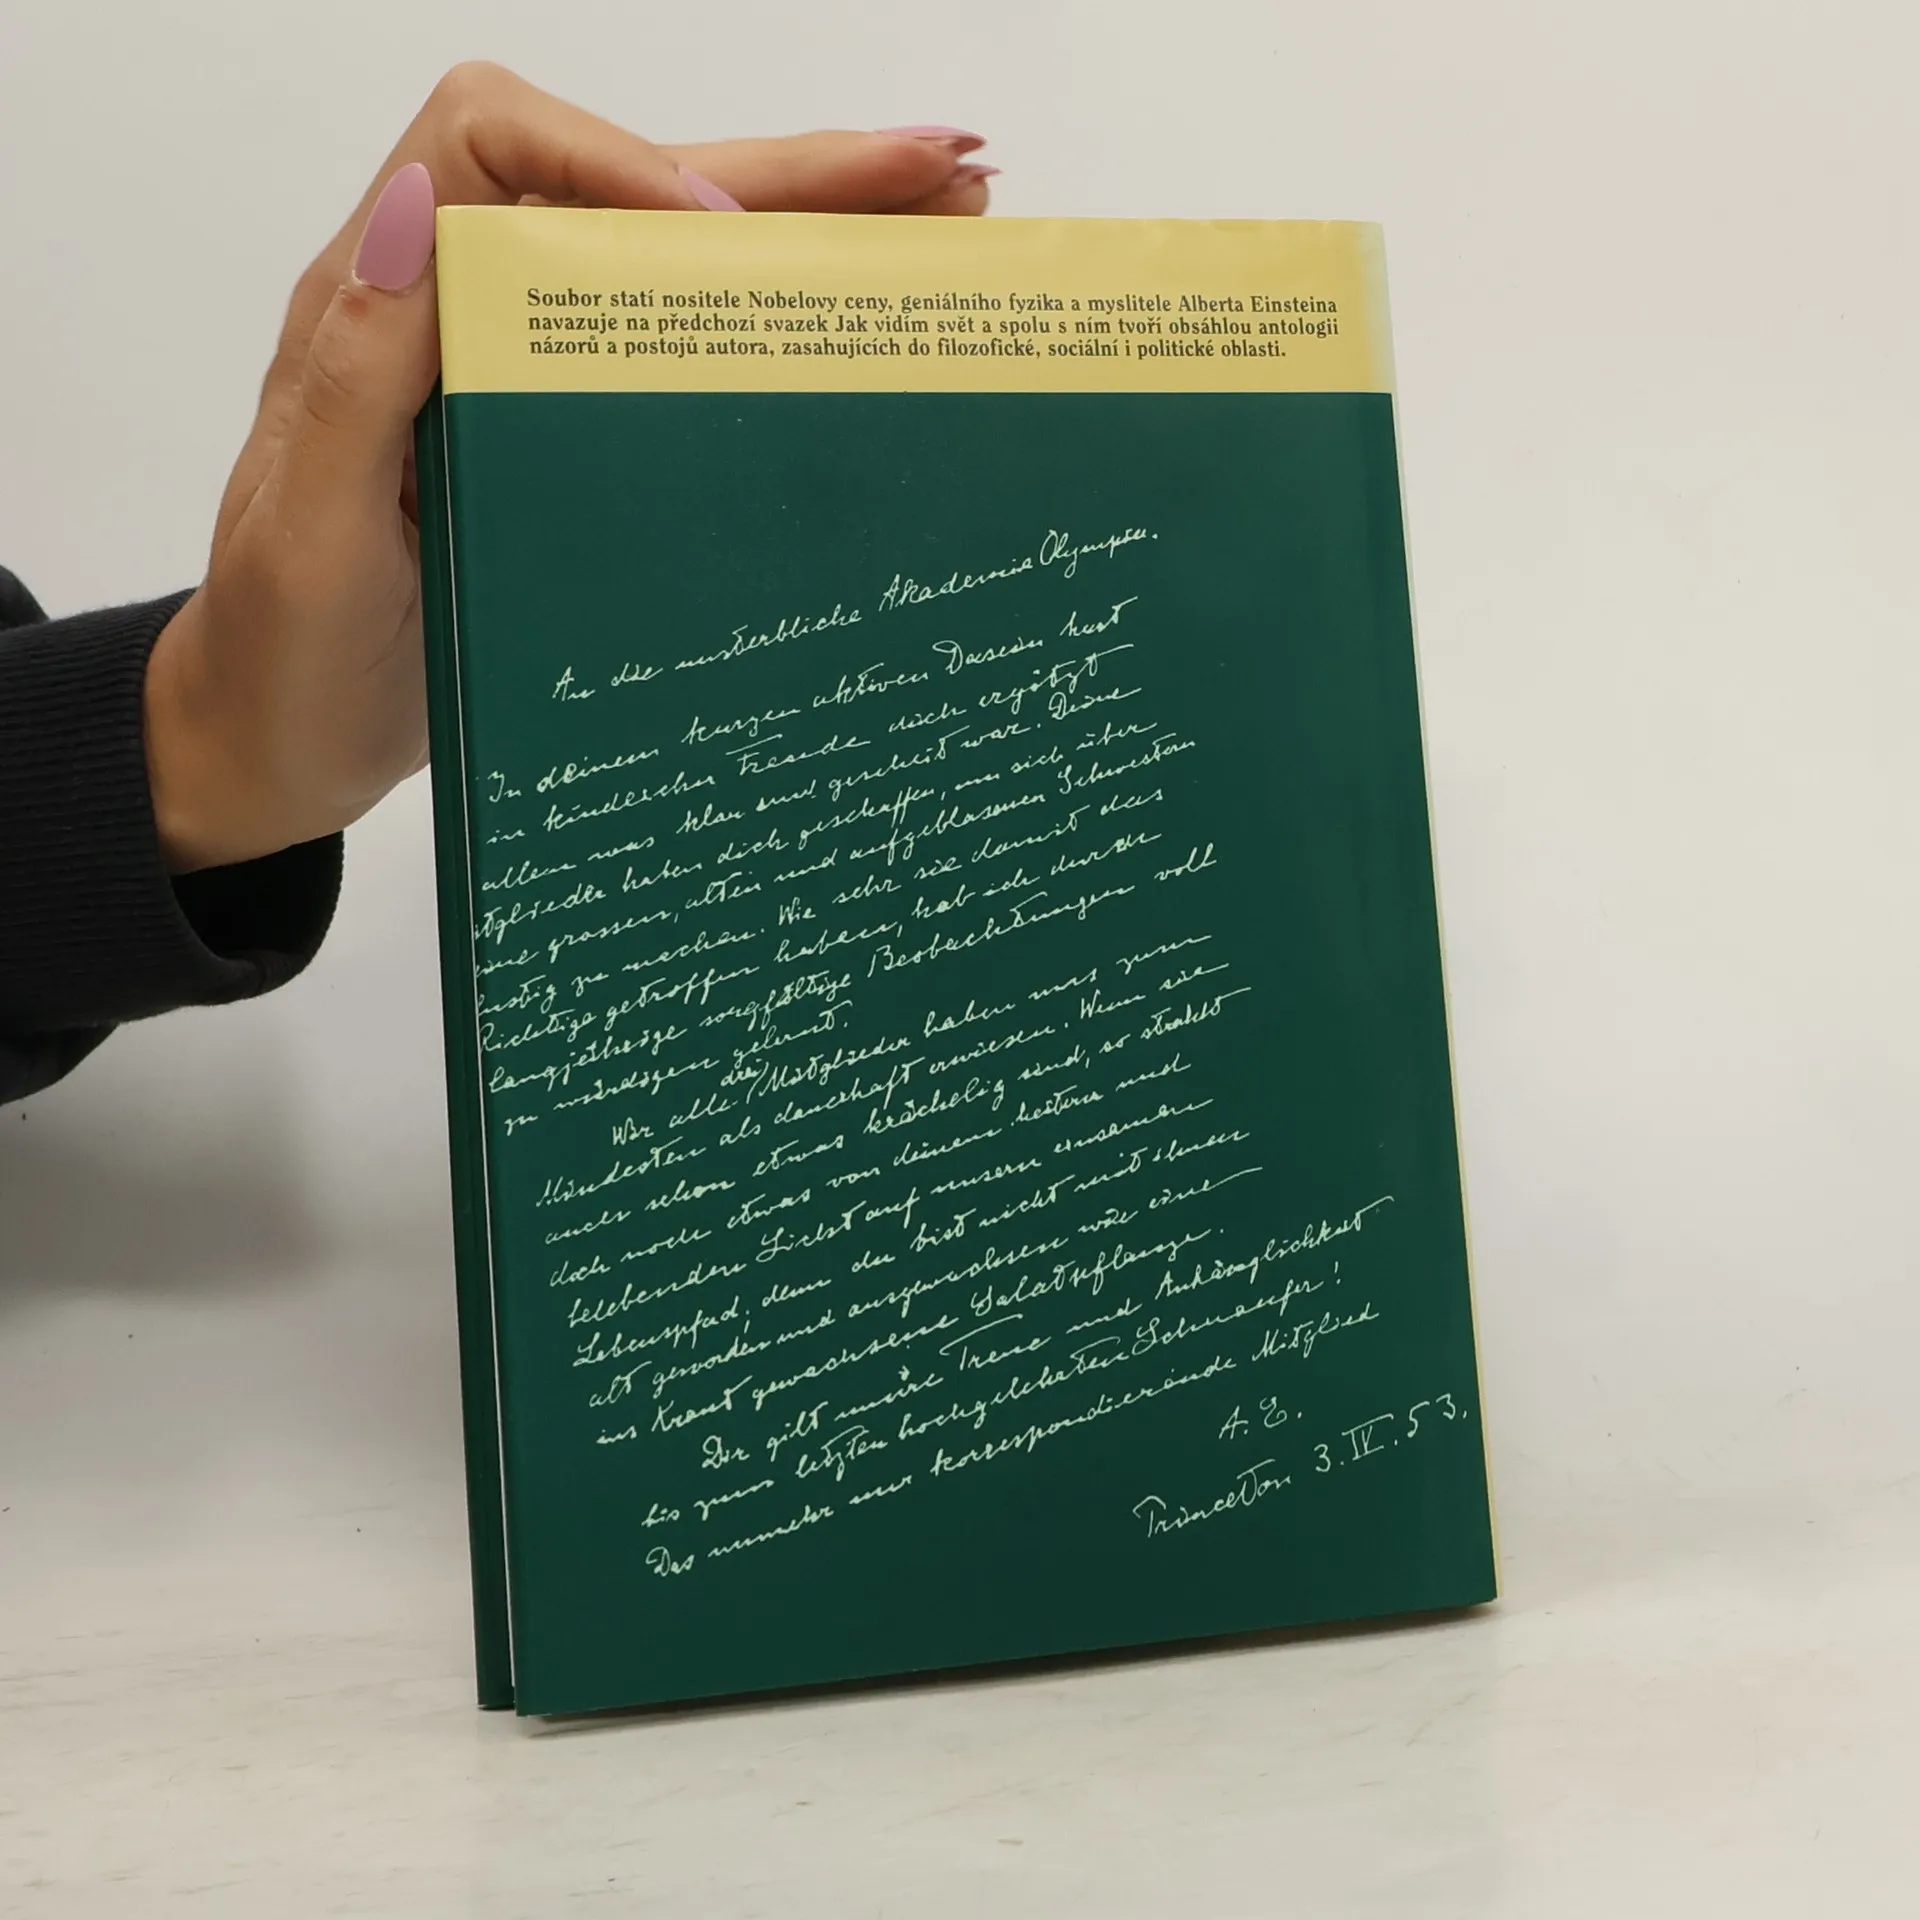 Soubor statí nositele Nobelovy ceny, geniálního fyzika a myslitele Alberta Einsteina
navazuje na předchozí svazek Jak vidím svět a spolu s ním tvoří obsáhlou antologii
názorů a postojů autora, zasahujících do filozofické, sociální i politické oblasti.
An die unsterbliche Akademie Olympia.
In deinem kurzen aktiven Dasein hast
in kindischer Freude dich ergötzt
allem was klar und gescheit war. Deine
itglieder haben dich geschaffen, um sich über
eine grossen, alten und aufgeblasenen Schwestern
lustig zu machen. Wie sehr sie damit das
Richtige getroffen haben, hab ich durch
langjährige sorgfältige Beobachtungen voll
zu würdigen gelernt.
Wir alle drei Mitglieder haben uns zum
Mindesten als dauerhaft erwiesen. Wenn sie
auch schon etwas krächelig sind, so strahlt
doch noch etwas von deinem heitern und
belebenden Licht auf unsern einsamen
Lebenspfad; denn du bist nicht mit ihnen
alt geworden und ausgewachsen wie eine
ins Kraut gewachsene Salatpflanze.
Dir gilt unsre Treue und Anhänglichkeit
bis zum letzten hochgelehrten Schnaufer!
Das nunmehr nur korrespondierende Mitglied
A. E.
Princeton 3. IV. 53.